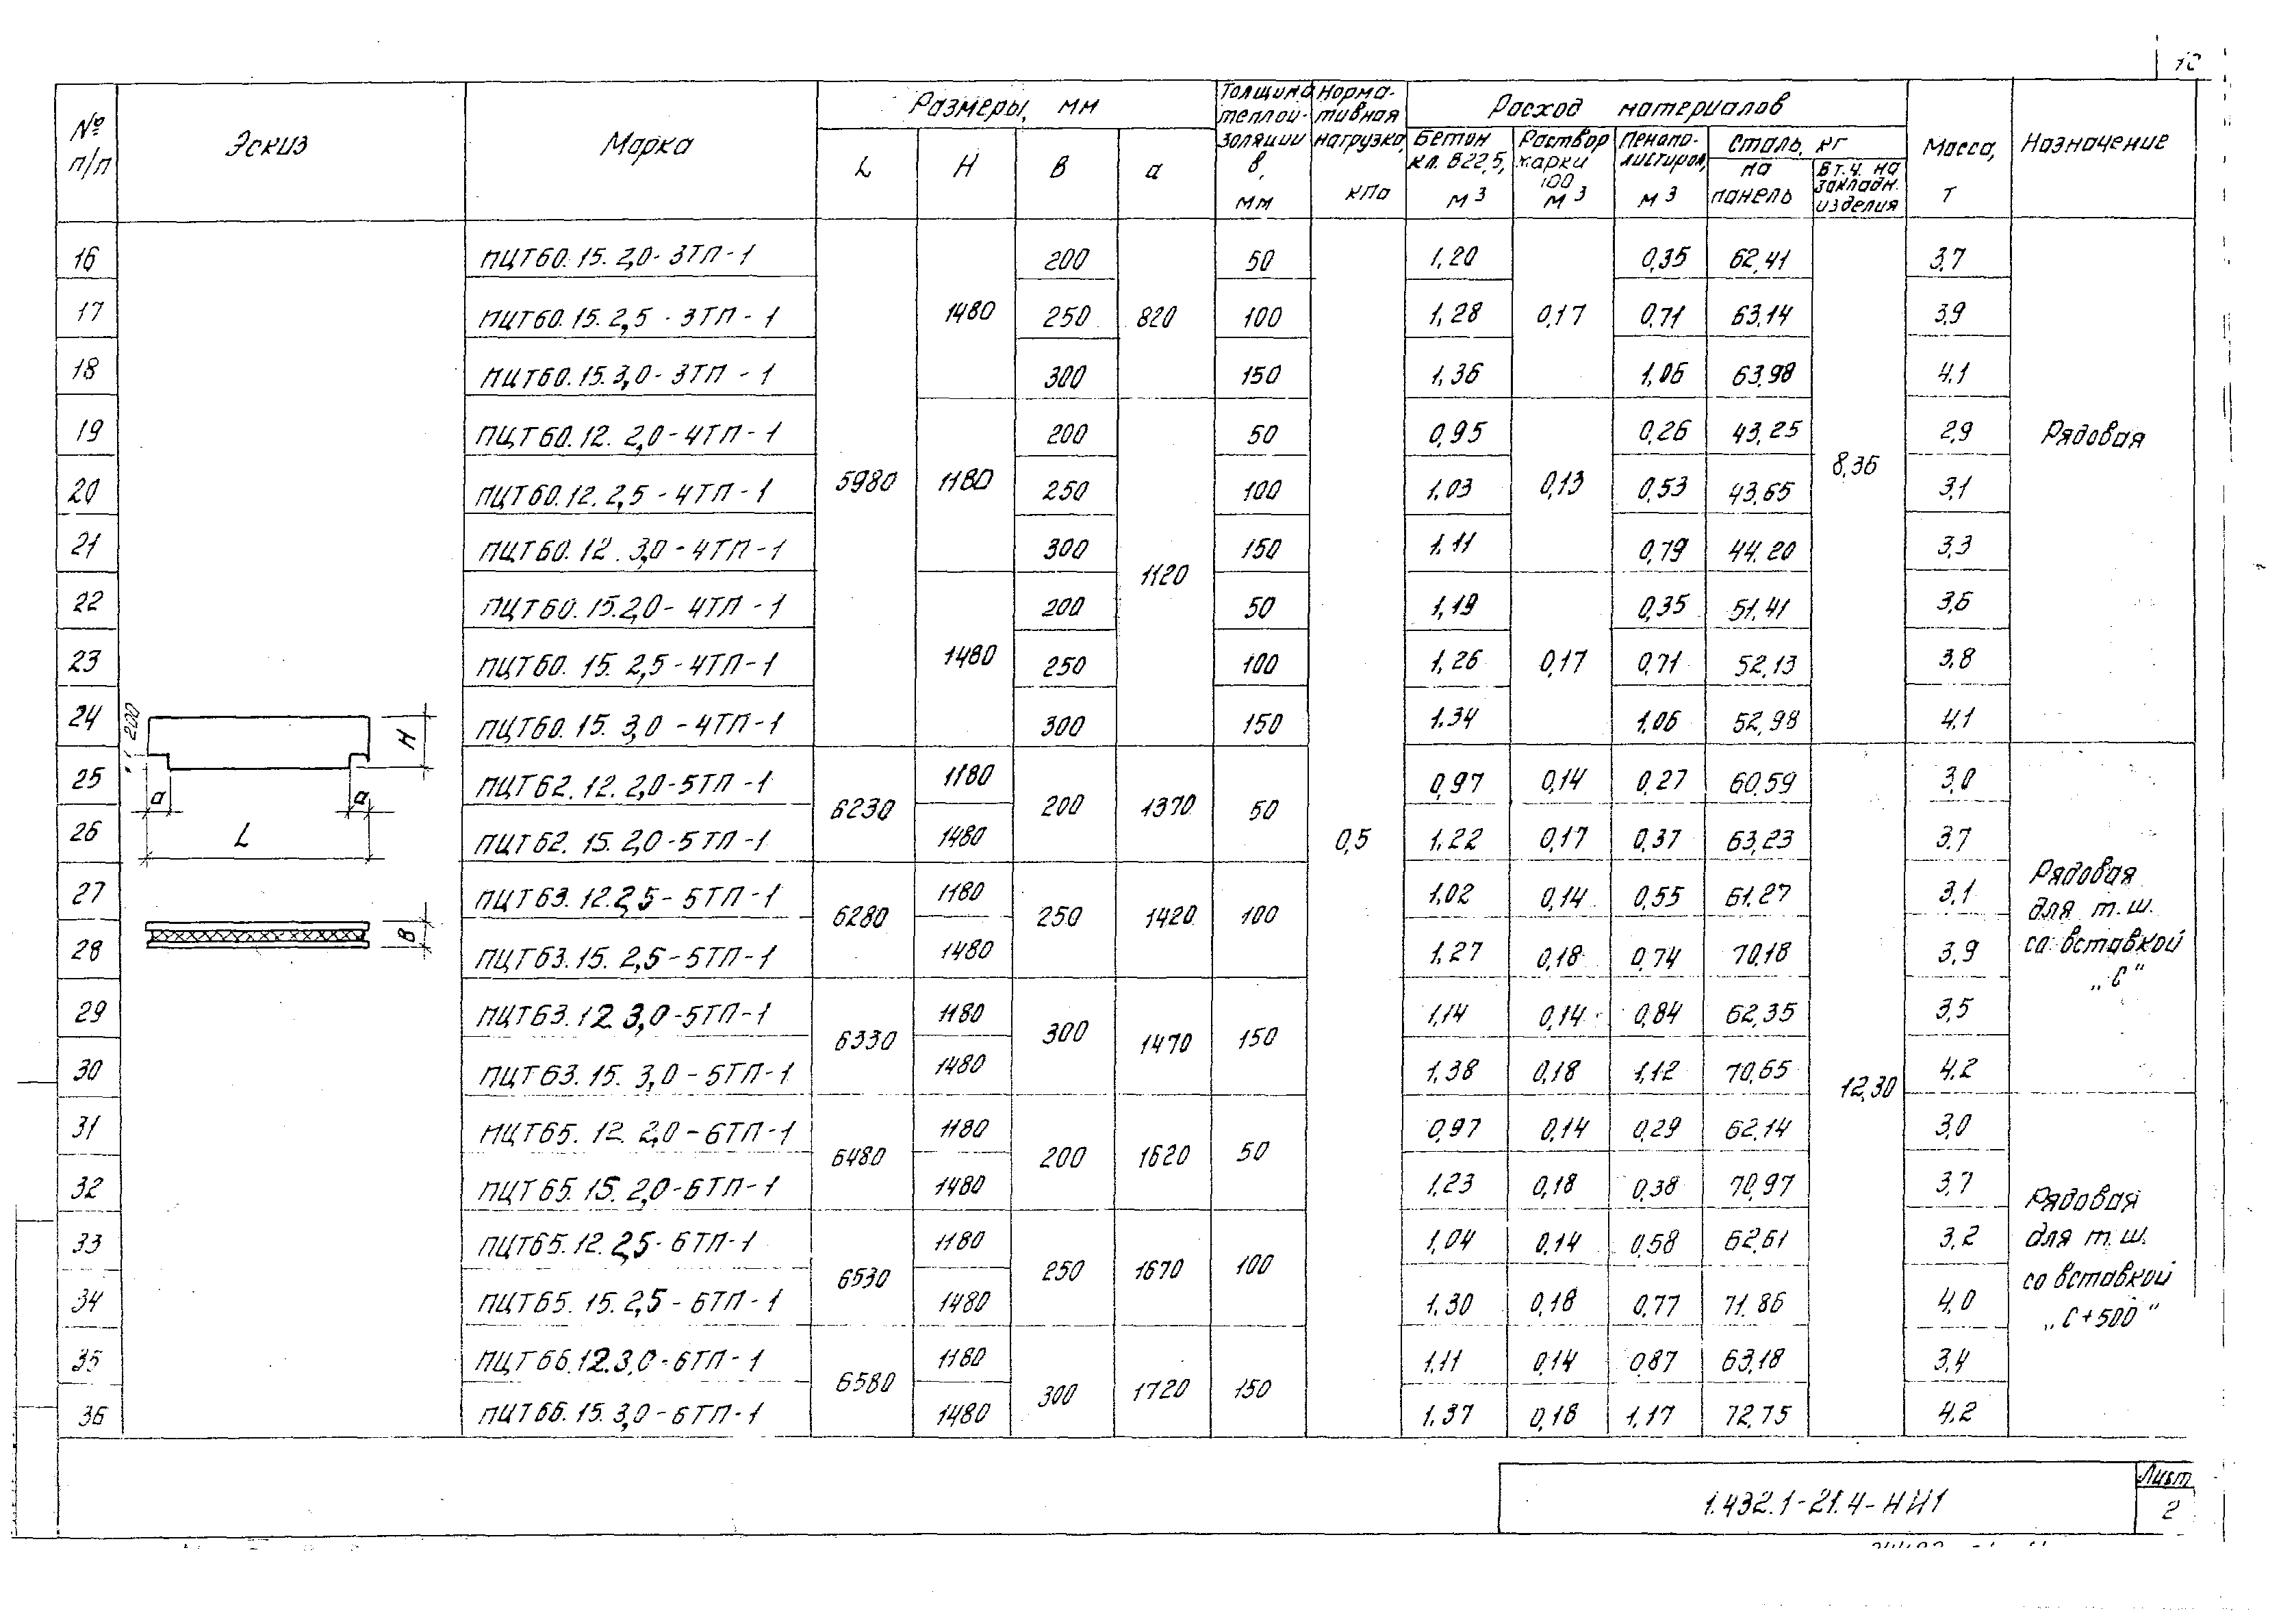 10
№ п/п
Эскиз
Марка
Размеры, мм
L
H
B
a
Толщина теплоизоляции в, мм
Нормативная нагрузка, кПа
Расход материалов
Бетон кл. B22,5, м3
Раствор марки 100 м3
Пенополистирол, м3
Сталь, кг
на панель
в т.ч. на закладн. изделия
Масса, т
Назначение
16 ПЦТ60.15.2,0-3ТП-1 200 50 1,20 0,35 62,41 3,7
17 ПЦТ60.15.2,5-3ТП-1 1480 250 820 100 1,28 0,17 0,71 63,14 3,9
18 ПЦТ60.15.3,0-3ТП-1 300 150 1,36 1,06 63,98 4,1
19 ПЦТ60.12.2,0-4ТП-1 200 50 0,95 0,26 43,25 2,9 Рядовая
20 ПЦТ60.12.2,5-4ТП-1 5980 1180 250 100 1,03 0,13 0,53 43,65 8,36 3,1
21 ПЦТ60.12.3,0-4ТП-1 300 1120 150 1,11 0,79 44,20 3,3
22 ПЦТ60.15.2,0-4ТП-1 200 50 1,19 0,35 51,41 3,6
23 ПЦТ60.15.2,5-4ТП-1 1480 250 100 1,26 0,17 0,71 52,13 3,8
24 ПЦТ60.15.3,0-4ТП-1 300 150 1,34 1,06 52,98 4,1
200
H
a
a
L
B
25 ПЦТ62.12.2,0-5ТП-1 6230 1180 200 1370 50 0,97 0,14 0,27 60,59 3,0
26 ПЦТ62.15.2,0-5ТП-1 1480 0,5 1,22 0,17 0,37 63,23 3,7
27 ПЦТ63.12.2,5-5ТП-1 6280 1180 250 1420 100 1,02 0,14 0,55 61,27 3,1
28 ПЦТ63.15.2,5-5ТП-1 1480 1,27 0,18 0,74 70,18 3,9
Рядовая
для т.ш.
со вставкой
„С"
29 ПЦТ63.12.3,0-5ТП-1 6330 1180 300 1470 150 1,14 0,14 0,84 62,35 3,5
30 ПЦТ63.15.3,0-5ТП-1 1480 1,38 0,18 1,12 70,65 12,30 4,2
31 ПЦТ65.12.2,0-6ТП-1 6480 1180 200 1620 50 0,97 0,14 0,29 62,14 3,0
32 ПЦТ65.15.2,0-6ТП-1 1480 1,23 0,18 0,38 70,97 3,7
33 ПЦТ65.12.2,5-6ТП-1 6530 1180 250 1670 100 1,04 0,14 0,58 62,61 3,2
34 ПЦТ65.15.2,5-6ТП-1 1480 1,30 0,18 0,77 71,86 4,0
Рядовая
для т.ш.
со вставкой
„С+500"
35 ПЦТ66.12.3,0-6ТП-1 6580 1180 300 1720 150 1,11 0,14 0,87 63,18 3,4
36 ПЦТ66.15.3,0-6ТП-1 1480 1,37 0,18 1,17 72,75 4,2
1.432.1-21.4-НИ1
Лист
2